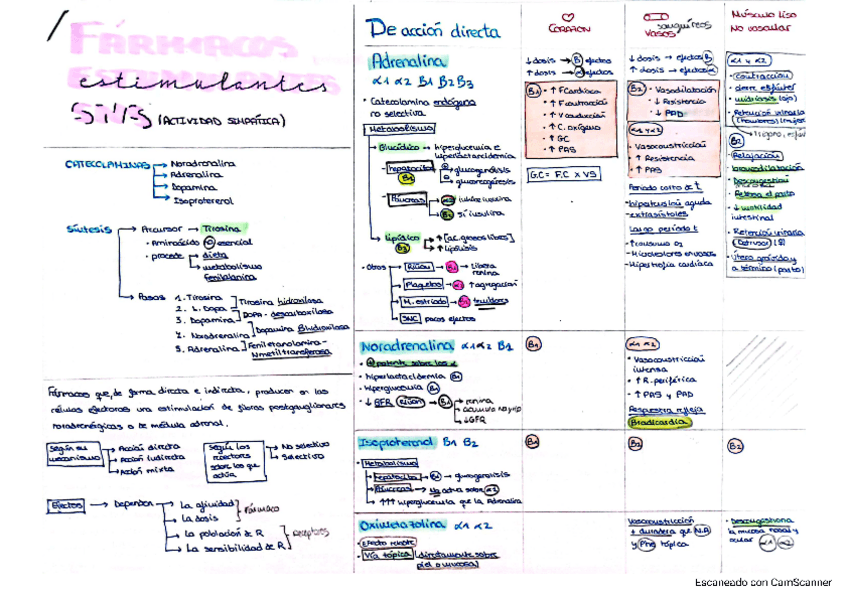 Fármacos
estimulantes
SNS (ACTIVIDAD SIMPÁTICA)
CATECOLAMINAS → Noradrenalina
→ Adrenalina
→ Dopamina
→ Isoproterenol
Síntesis → Precursor → Tirosina
· Aminoácido esencial
· procede → dieta
→ metabolismo
fenilalanina
→ Pasos 1. Tirosina
2. L. Dopa
3. Dopamina
4. Noradrenalina
5. Adrenalina
Tirosina hidroxilasa
DOPA - descarboxilasa
Dopamina β hidroxilasa
Feniletanolamina -
N metiltransferasa
Fármacos que, de forma directa e indirecta, producen en las
células efectoras una estimulación de fibras postganglionares
noradrenérgicas o de médula adrenal.
Según su
mecanismo → Acción directa
→ Acción indirecta
→ Acción mixta
Según los
receptores
sobre los que
actúa → No selectivo
→ Selectivo
Efectos → Dependen → La afinidad
→ La dosis
Fármaco
→ La población de R
→ La sensibilidad de R
Receptores
De acción directa
Adrenalina
α1 α2 B1 B2 B3
· Catecolamina endógena
no selectiva
Metabolismo
→ Glucídico → hiperglucemia e
hiperlactacidemia
hepatocitos → glucogenólisis
B2 → gluconeogénesis
Páncreas → α2 inhibe insulina
→ B2 sí insulina
→ Lipídico → ↑ [ac. grasos libres]
B3 → ↑ lipólisis
· Otros → Riñón → B1 → libera
renina
→ Plaquetas → α2 ↑ agregación
→ M. estriado → B2 temblores
→ SNC pocos efectos
CORAZÓN
↓ dosis → B efectos
↑ dosis → α efectos
B1 · ↑ F Cardíaca
· ↑ F contracción
· ↑ V conducción
· ↑ C. oxígeno
· ↑ GC
· ↑ PAS
G.C = F.C x VS
VASOS sanguíneos
↓ dosis → efectos B
↑ dosis → efectos α
B2 · Vasodilatación
↓ Resistencia
↓ PAD
α1 y α2
· Vasoconstricción
↑ Resistencia
↑ PAS
Periodo corto de t
- hipertensión aguda
- extrasístoles
Largo periodo t
· ↑ consumo O2
· Hipertrofia cardíaca
Músculo liso
No vascular
α1 y α2
· contracción
· cierre esfínter
· midriasis (ojo)
· Retención urinaria
B2
· Relajación
· broncodilatación
Retrasa el parto
· ↓ motilidad
intestinal
· Retención urinaria
(Detrusor)
· Útero grávido y
a término (parto)
Noradrenalina α1 α2 B1
· potente sobre los α
· hiperlactacidemia B1
· hiperglucemia
· ↓ GFR Riñón → B1 → renina
→ ↓GFR
B1
α1 α2
· Vasoconstricción
intensa
· ↑ R. periférica
· ↑ PAS y PAD
Respuesta refleja
Bradicardia
Isoproterenol B1 B2
· Metabolismo
→ hepatocito → glucogenólisis
→ Páncreas → No actúa sobre α2
→ ↑↑↑ hiperglucemia que la Adrenalina
B1
B2
B2
Oximetazolina α1 α2
· efecto rebote
· Vía tópica (directamente sobre
piel o mucosa)
Vasoconstricción
+ duradera que NA
y Phe tópica
· Descongestiona
la mucosa nasal y
ocular α1 α2
Escaneado con CamScanner